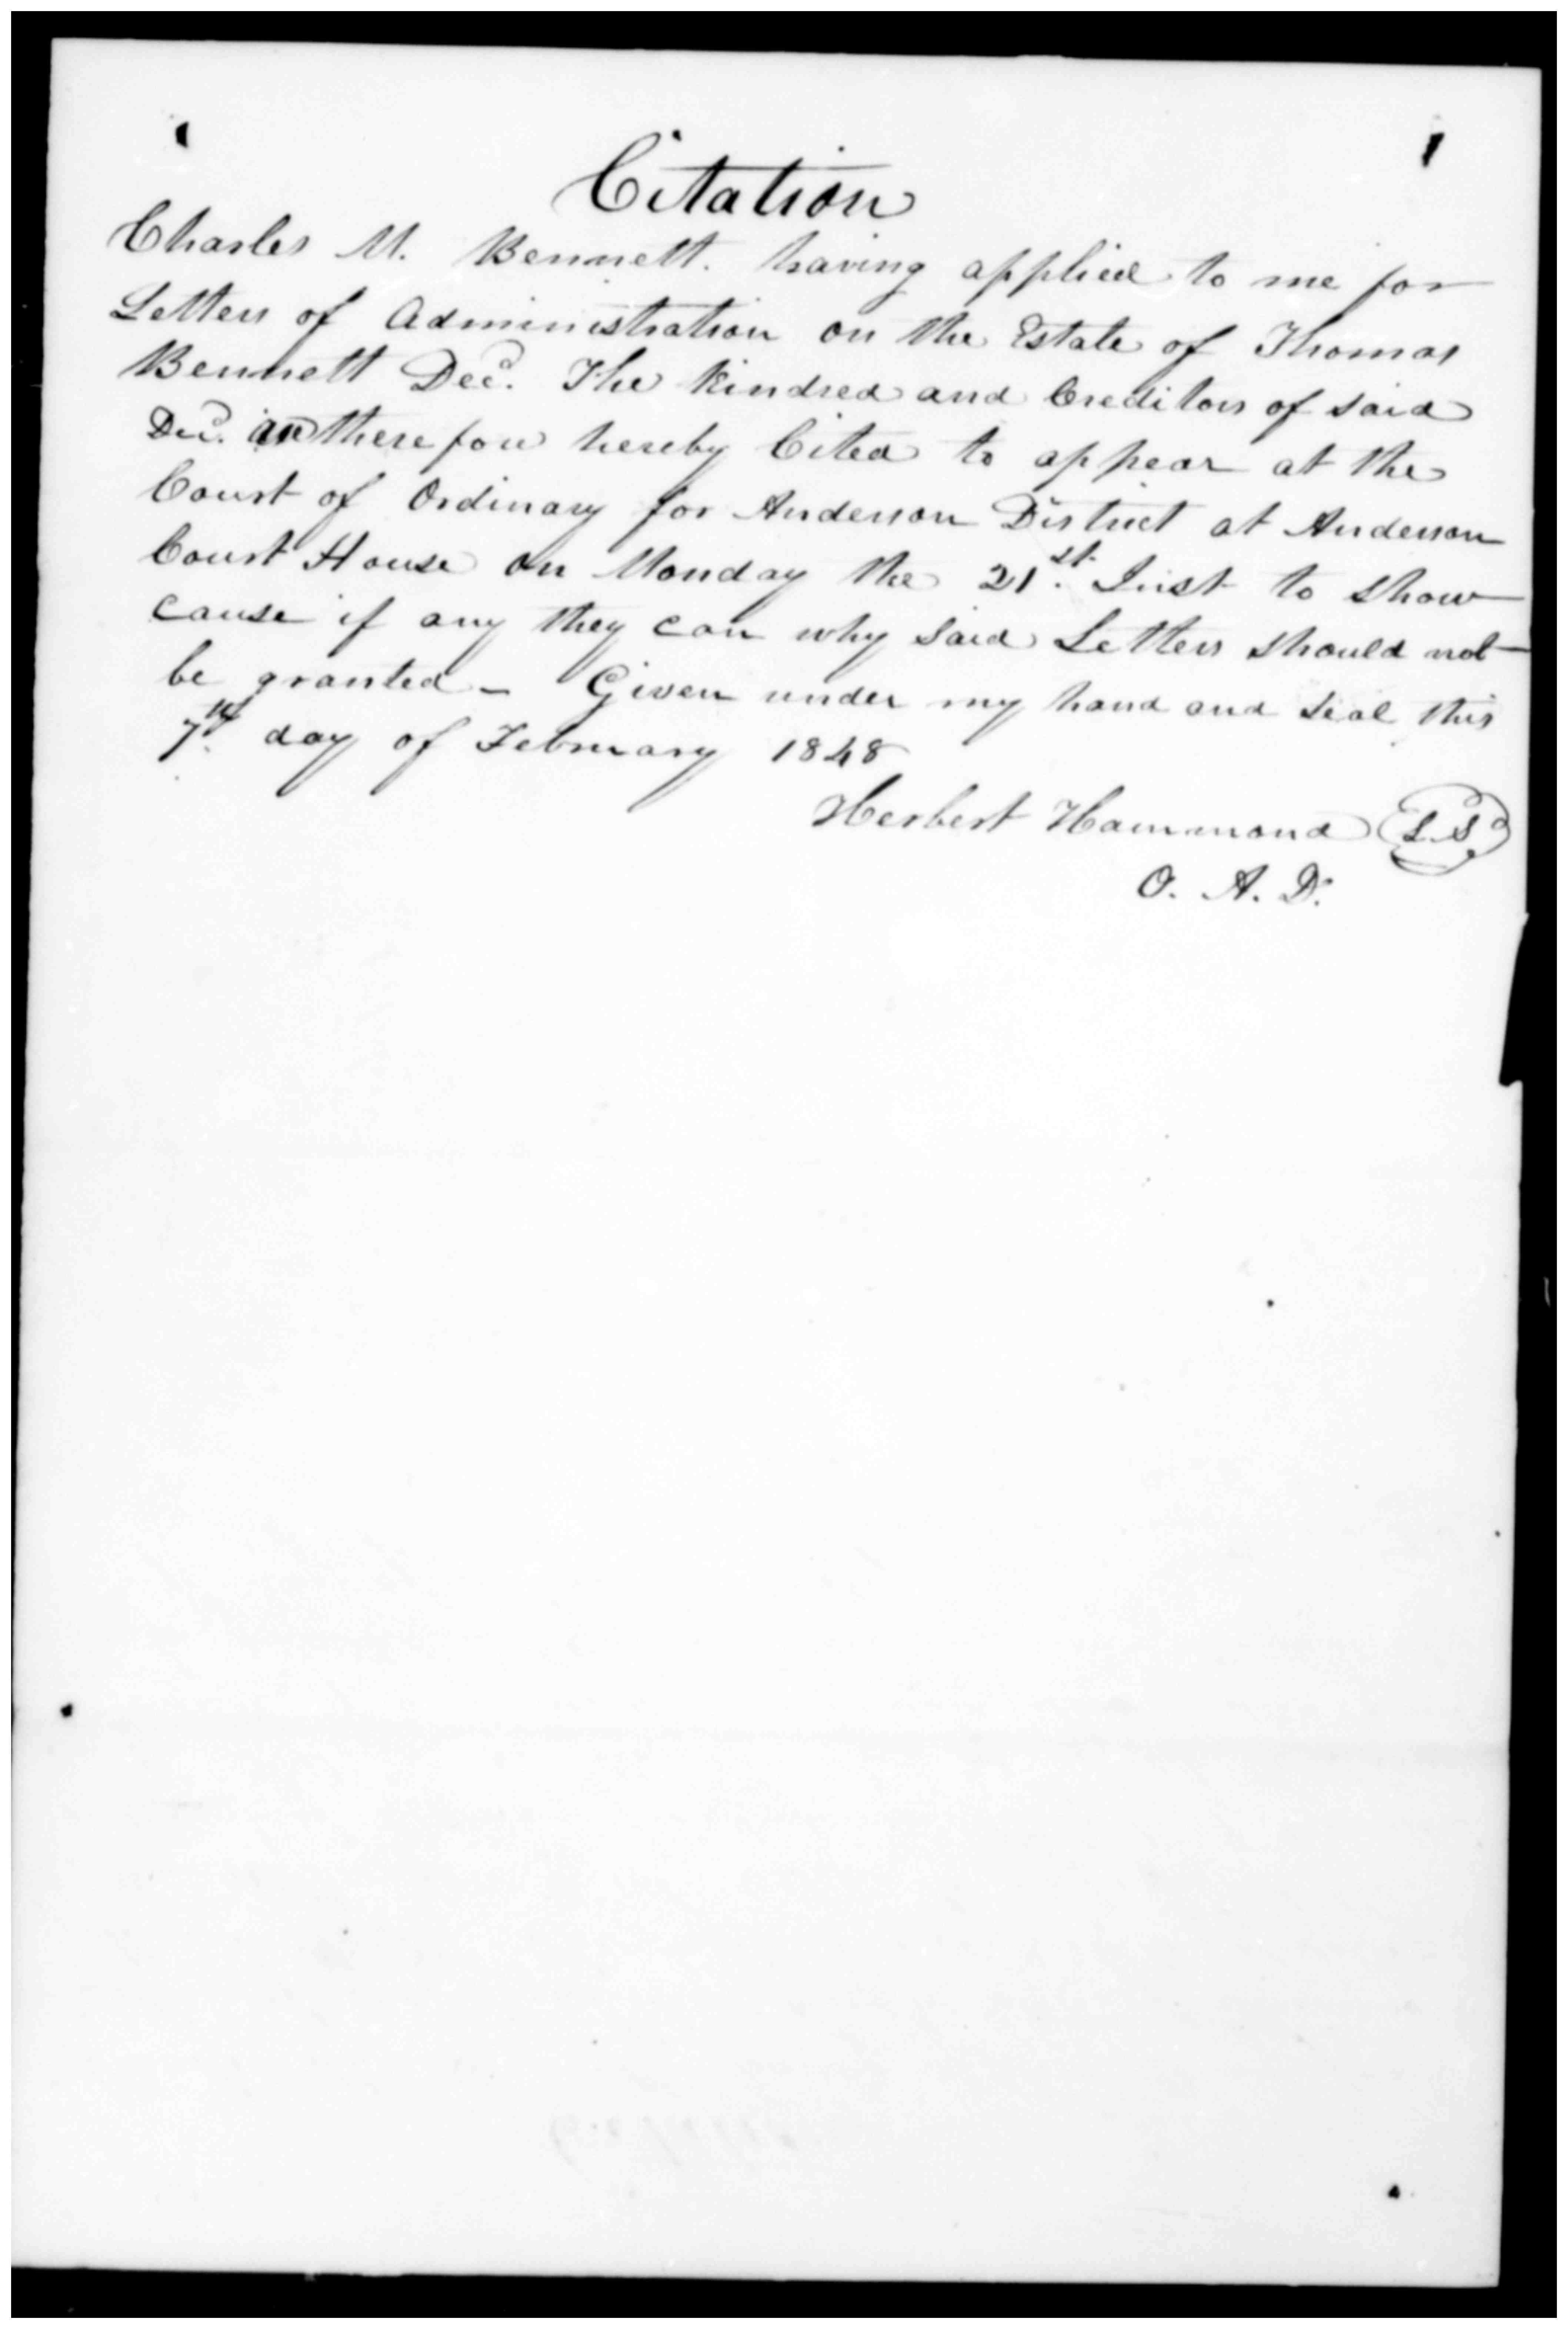 Citation
Charles M. Bennett. having applied to me for
Letters of Administration on the Estate of Thomas
Bennett Decd. The Kindred and Creditors of said
Decd. are therefore hereby Cited to appear at the
Court of Ordinary for Anderson District at Anderson
Court House on Monday the 21st. Inst to show
cause if any they can why said Letters should not
be granted - Given under my hand and seal this
7th day of February 1848
Herbert Hammond L.S.
O. A. D.